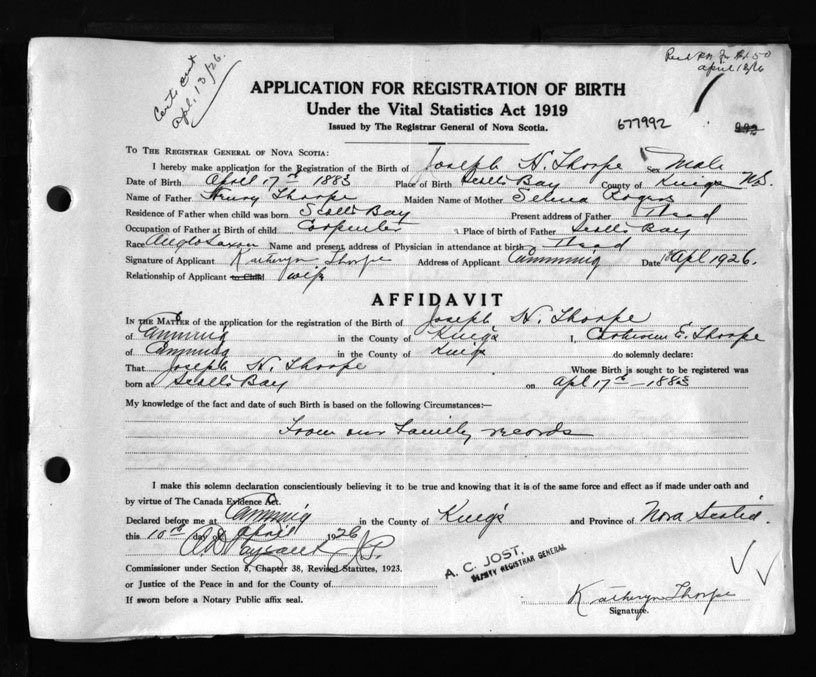 Certs sent
apl. 13/26.
April 13/26
APPLICATION FOR REGISTRATION OF BIRTH
Under the Vital Statistics Act 1919
Issued by The Registrar General of Nova Scotia.
677992
TO THE REGISTRAR GENERAL OF NOVA SCOTIA:
I hereby make application for the Registration of the Birth of Joseph H. Thorpe Sex Male
Date of Birth April 17th 1883 Place of Birth Scotts Bay County of Kings N.S.
Name of Father Henry Thorpe Maiden Name of Mother Selina Rogers
Residence of Father when child was born Scotts Bay Present address of Father Dead
Occupation of Father at Birth of child Carpenter Place of birth of Father Scotts Bay
Race Anglo Saxon Name and present address of Physician in attendance at birth Dead
Signature of Applicant Katheryn Thorpe Address of Applicant Canning Date 10 Apl 1926.
Relationship of Applicant to Child wife
AFFIDAVIT
IN THE MATTER of the application for the registration of the Birth of Joseph H. Thorpe
of Canning in the County of Kings I, E. Thorpe
of Canning in the County of Kings do solemnly declare:
That Joseph H. Thorpe Whose Birth is sought to be registered was
born at Scotts Bay on Apl 17th - 1883
My knowledge of the fact and date of such Birth is based on the following Circumstances:—
From our Family records
I make this solemn declaration conscientiously believing it to be true and knowing that it is of the same force and effect as if made under oath and
by virtue of The Canada Evidence Act.
Declared before me at Canning in the County of Kings and Province of Nova Scotia.
this 10th day of April 1926
J.P.
Commissioner under Section 8, Chapter 38, Revised Statutes, 1923.
or Justice of the Peace in and for the County of
If sworn before a Notary Public affix seal.
A. C. JOST,
DEPUTY REGISTRAR GENERAL
Katheryn Thorpe
Signature.